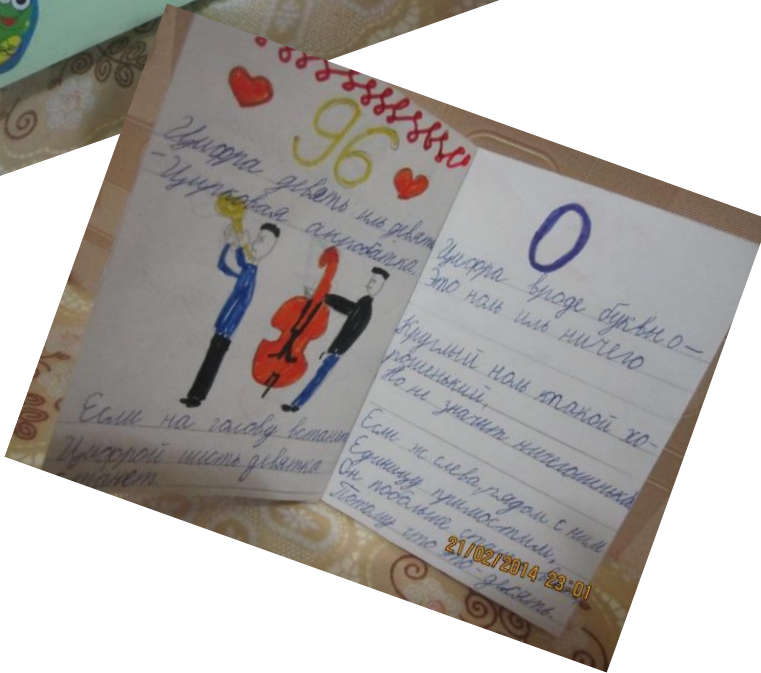 96
Цифра девять иль девятк
-Цирковая акробатка.
Если на голову встанет
Цифрой шесть девятка
станет.
0
Цифра вроде буквы О-
Это ноль иль ничего
Круглый ноль такой хо-
рошенький,
Но не значит ничегошеньки
Если ж слева рядом с ним
Единицу примостим,
Он побольше
Потому что это-десять.
21/02/2014 23:01